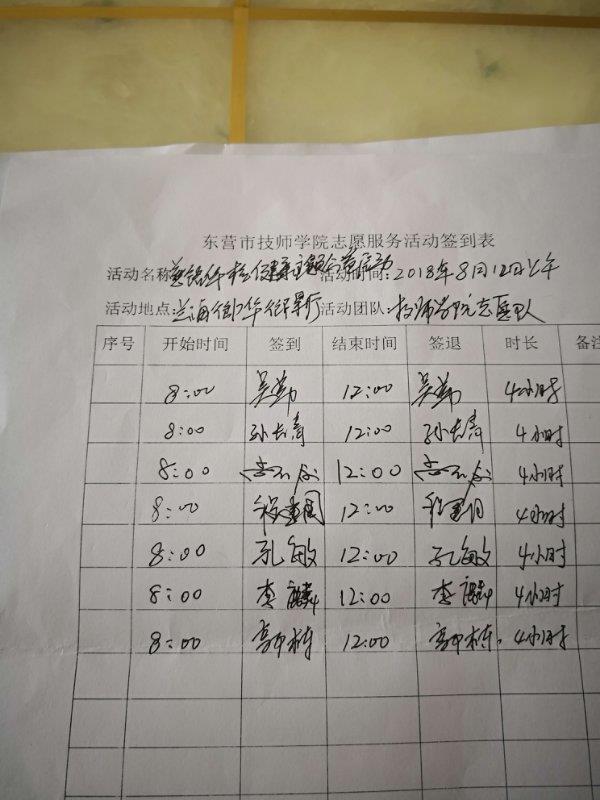 东营市技师学院志愿服务活动签到表
活动名称: 活动时间:2018年8月12日上午
活动地点: 活动团队:技师学院志愿队
序号 开始时间 签到 结束时间 签退 时长 备注
8:00 吴勤 12:00 吴勤 4小时
8:00 孙长青 12:00 孙长青 4小时
8:00 12:00 4小时
8:00 程建国 12:00 程建国 4小时
8:00 孔敏 12:00 孔敏 4小时
8:00 李麟 12:00 李麟 4小时
8:00 12:00 4小时